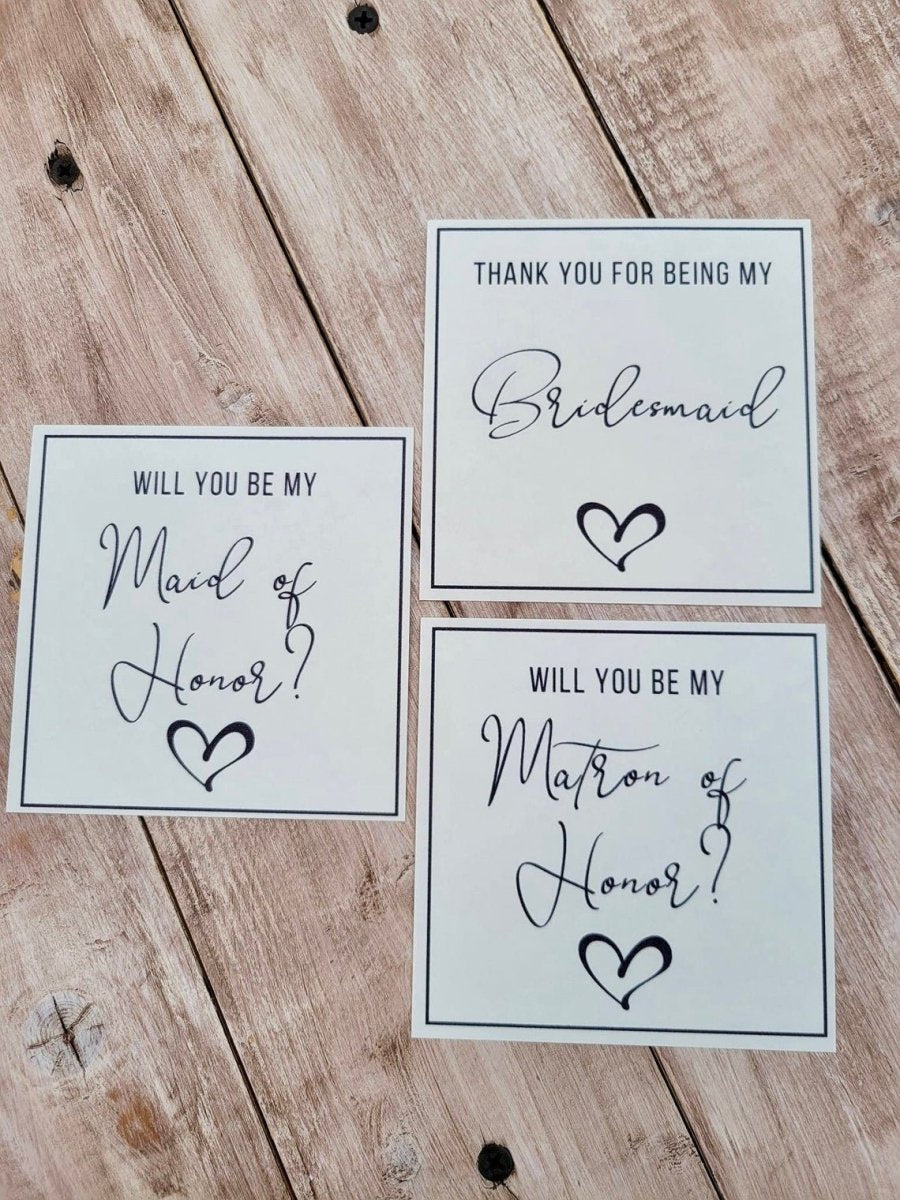 THANK YOU FOR BEING MY
Bridesmaid
WILL YOU BE MY
Maid of
Honor?
WILL YOU BE MY
Matron of
Honor?